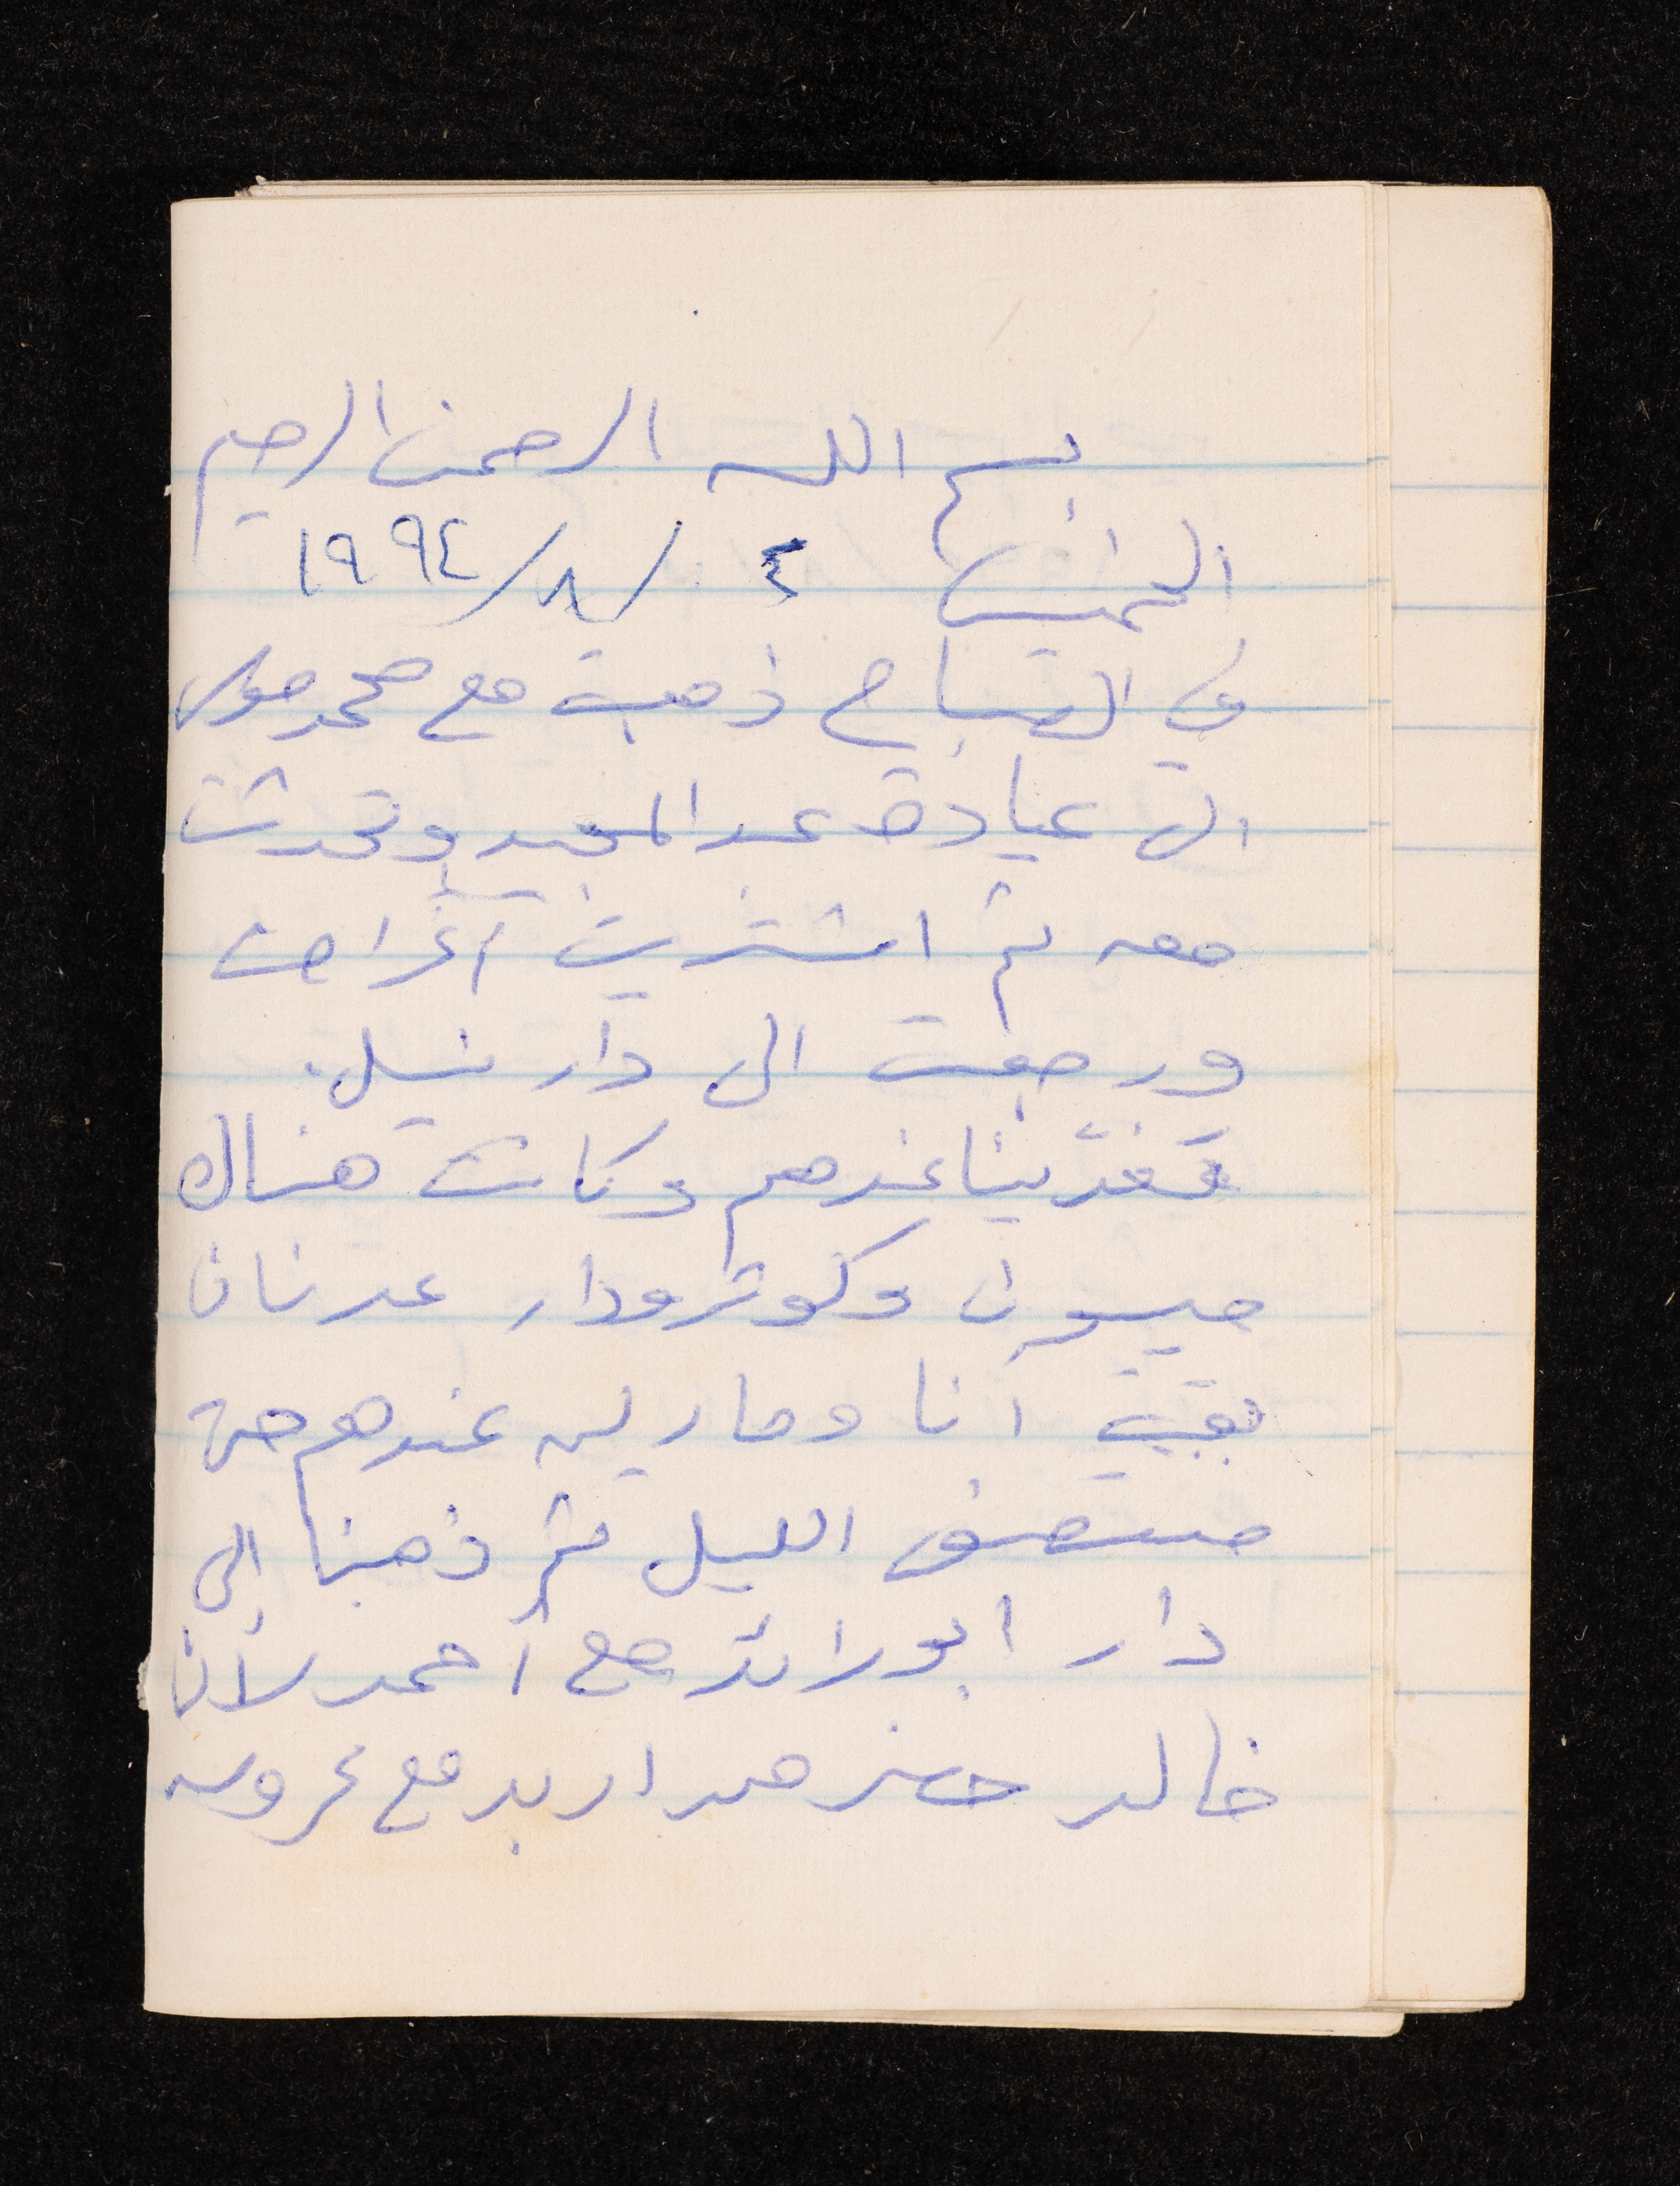 بسم الله الرحمن الرحيم
الخميس ٤ / ٨ / ١٩٩٤
في الصباح ذهبت مع محمد موسى
الى عيادة عبد المجيد وتحدثت
معه ثم اشتريت أغراض
ورجعت الى دار نبيل.
تغدّينا عندهم وكانت هناك
ميسون وكوثر ودار عدنان
بقيت أنا وماريه عندهم حتى
منتصف الليل ثم ذهبنا الى
دار ابو رائد مع أحمد لأن
خالد حضر من اربد مع عروسه